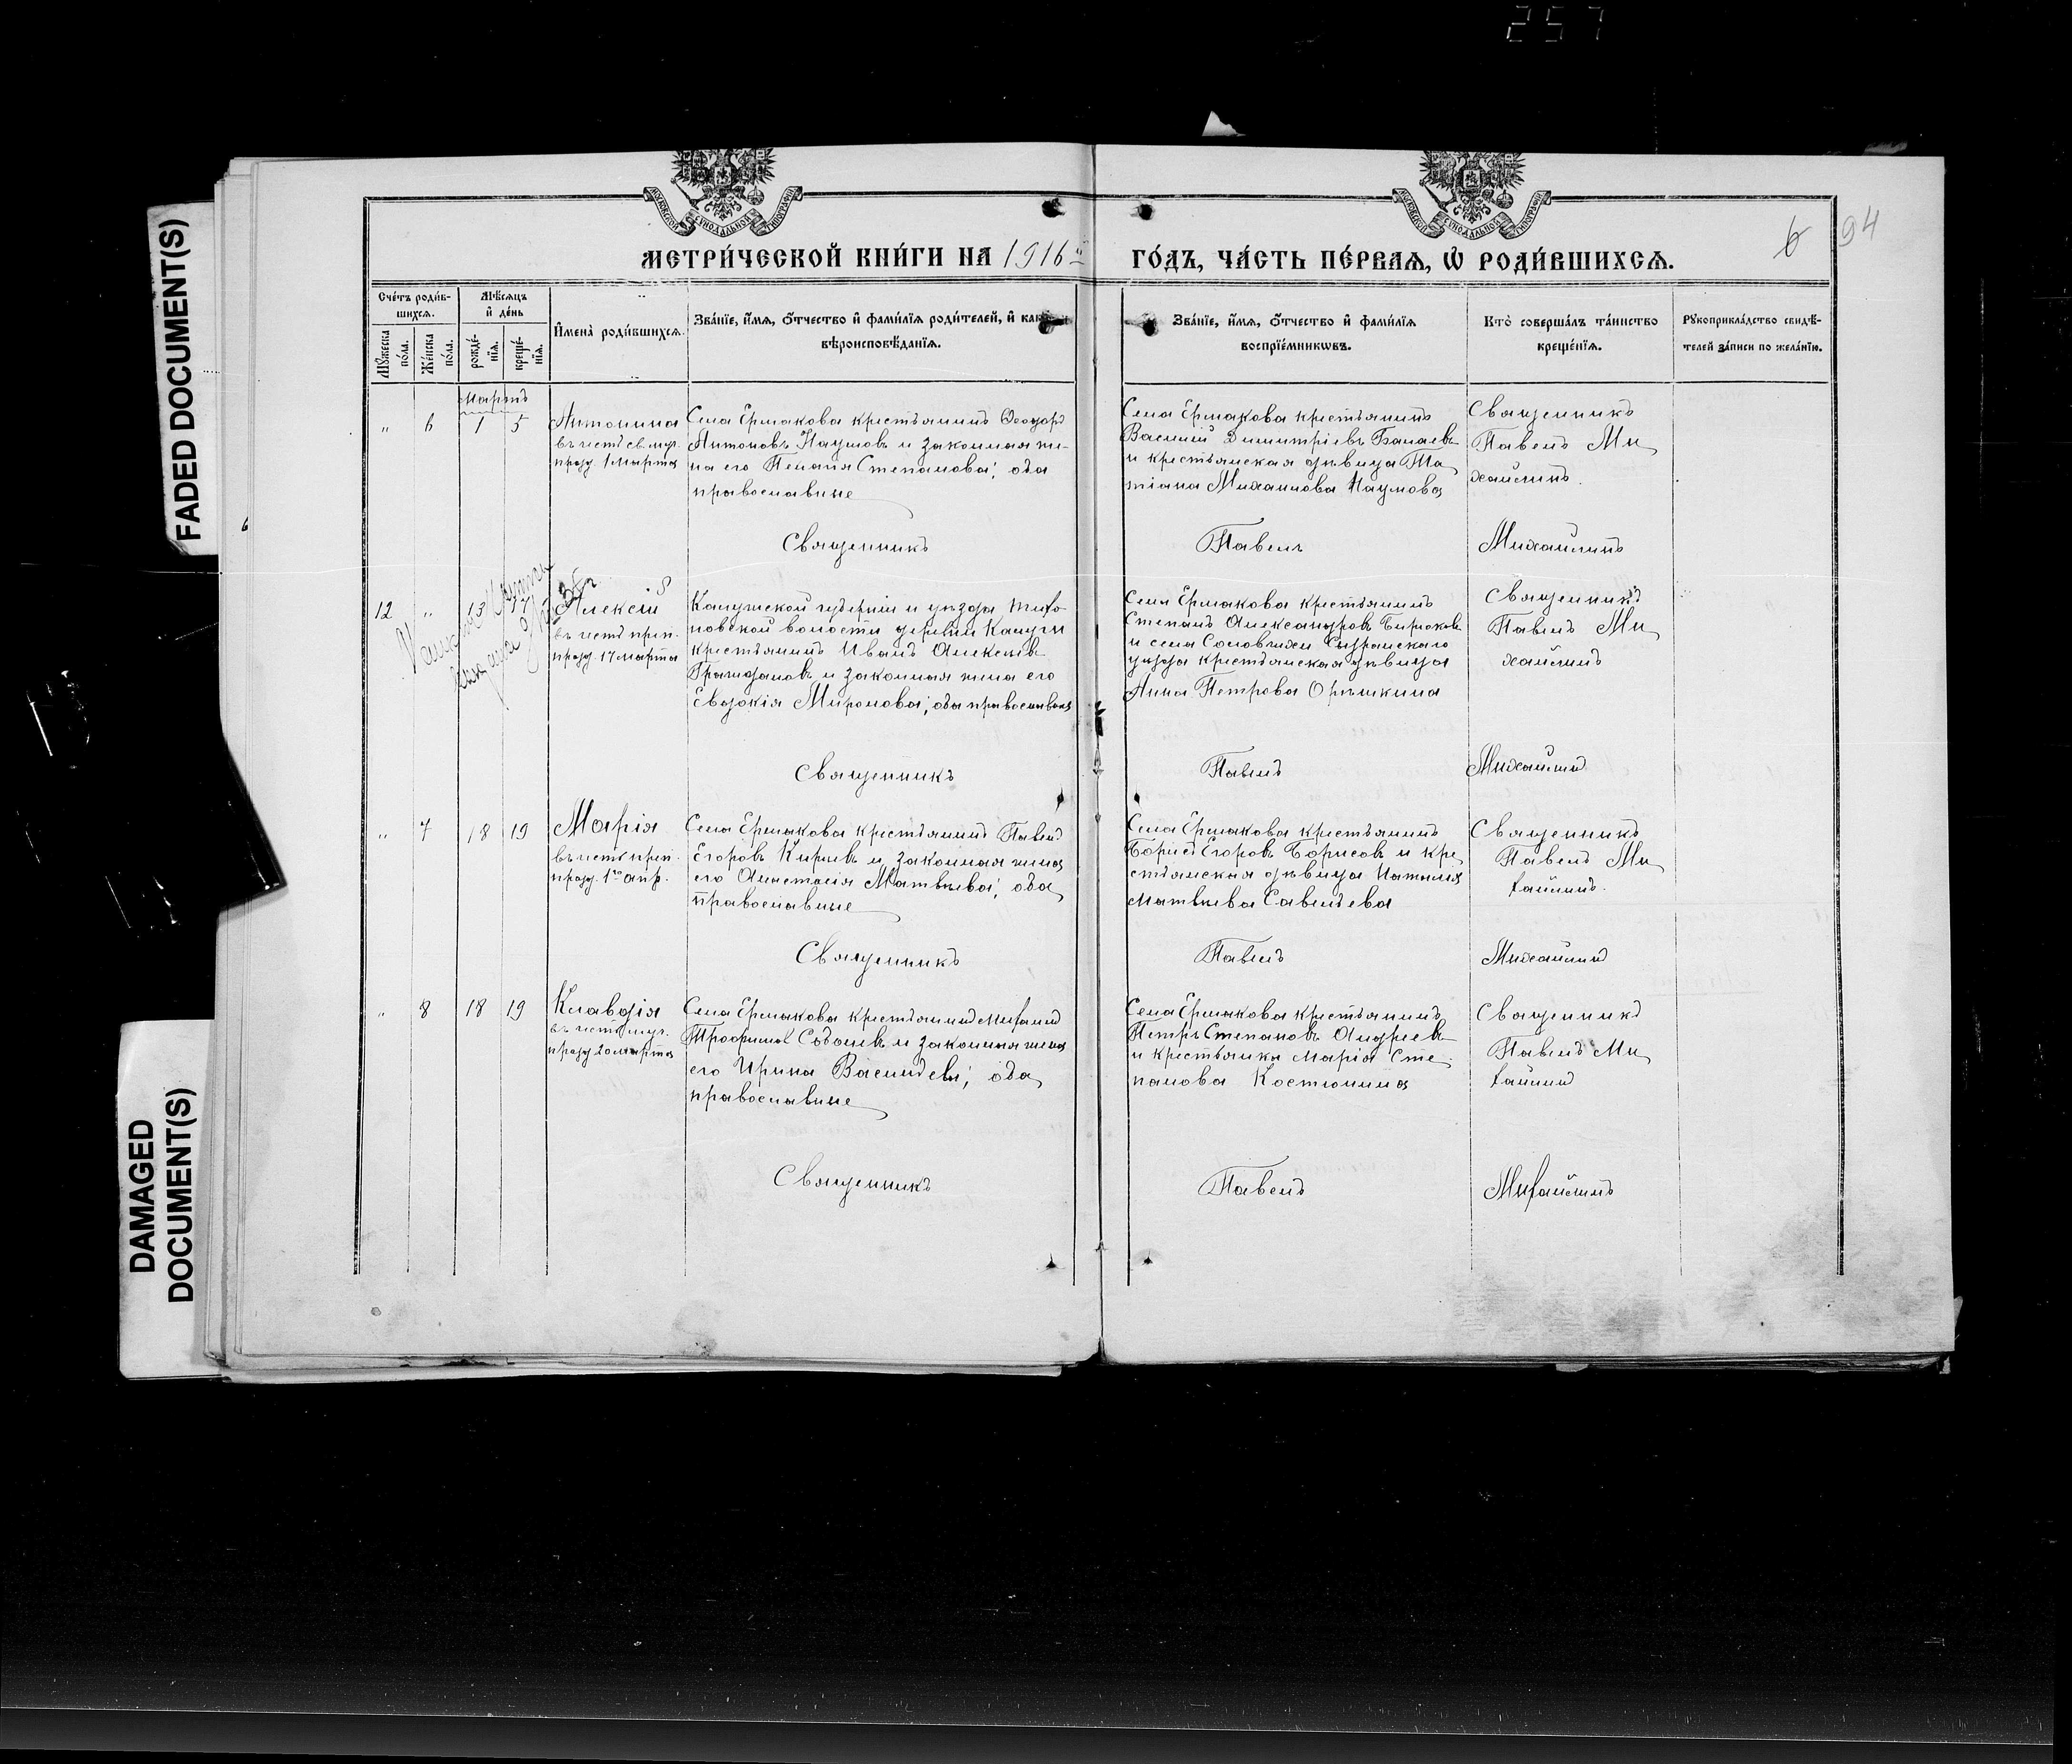 257
FADED DOCUMENT(S)
DAMAGED
DOCUMENT(S)
94
6
МЕТРИ́ЧЕСКОЙ КНИ́ГИ НА 1916й ГО́ДЪ, ЧА́СТЬ ПЕ́РВАѦ, Ѽ РОДИ́ВШИХСѦ.
Сче́тъ роди́в-
шихсѧ.
Мѣ́сѧцъ
и҆ де́нь
Мꙋ́жеска
по́ла.
Же́нска
по́ла.
рожде́-
нїѧ.
креще́-
нїѧ.
И҆мена̀ роди́вшихсѧ.
Зва́нїе, и҆́мѧ, ѻ҆́тчество и҆ фами́лїѧ роди́телей, и҆
вѣроисповѣ́данїѧ.
Зва́нїе, и҆́мѧ, ѻ҆́тчество и҆ фами́лїѧ
воспрїе́мникѡвъ.
Кто̀ соверша́лъ та́инство
креще́нїѧ.
Рꙋкоприкла́дство свидѣ́-
телей за́писи по жела́нїю.
Мартъ
" 6 1 5
Антонина
въ честь св. муч.
празд. 1 марта
Села Ермакова крестьянинъ Ѳеодоръ
Антоновъ Наумовъ и законная же-
на его Пелагія Степанова; оба
православные
Села Ермакова крестьянинъ
Василий Димитріевъ
и крестьянская дѣвица Та
тіана Михаилова Наумова
Священникъ
Павелъ Ми
хайлинъ.
Священникъ Павелъ Михайлинъ
12 " 13 17
Алексій
въ честь преп.
празд. 17 марта
Калужской губерніи и уѣзда
новской волости деревни Калуги
крестьянинъ Иванъ Алексѣевъ
и законная жена его
Евдокія Миронова; оба православные
Села Ермакова крестьянинъ
Степанъ Александровъ Бирюковъ
и села Соловчихи Сызранскаго
уѣзда крестьянская дѣвица
Анна Петрова Орѣшкина
Священникъ
Павелъ Ми
хайлинъ
Священникъ Павелъ Михайлинъ
" 7 18 19
Марія
въ честь преп.
празд. 1го апр.
Села Ермакова крестьянинъ Павелъ
Егоровъ и законная жена
его Анастасія Матвѣева; оба
православные
Села Ермакова крестьянинъ
Борисъ Егоровъ Борисовъ и кре
стьянская дѣвица Наталія
Матвѣева Савельева
Священникъ
Павелъ Ми
хайлинъ.
Священникъ Павелъ Михайлинъ
" 8 18 19
Клавдія
въ честь муч.
празд. 20 марта
Села Ермакова крестьянинъ Михаилъ
Трофимовъ и законная жена
его Ирина Васильева; оба
православные
Села Ермакова крестьянинъ
Петръ Степановъ Андреевъ
и крестьянка Марія Сте
панова Костюнина
Священникъ
Павелъ Ми
хайлинъ
Священникъ Павелъ Михайлинъ